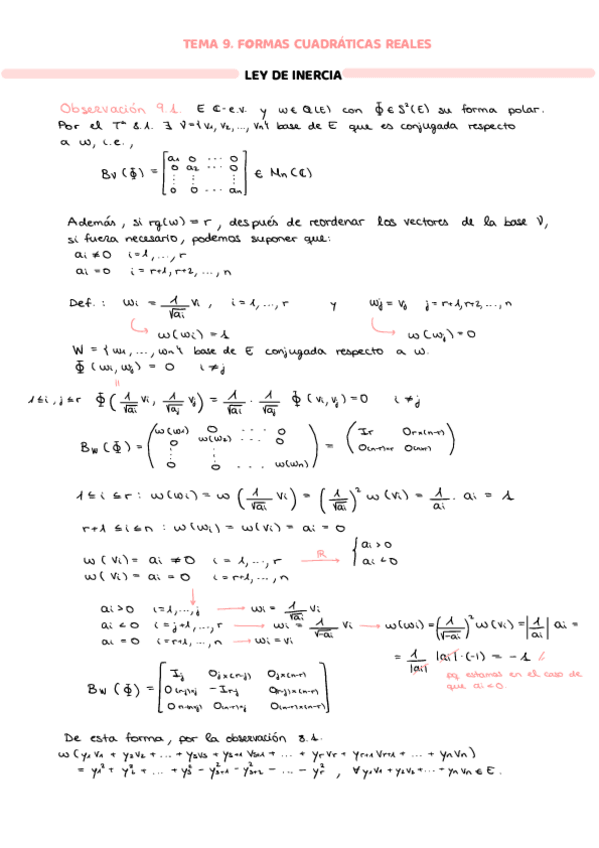 TEMA 9. FORMAS CUADRÁTICAS REALES
LEY DE INERCIA
Observación 9.1. E ℂ-e.v. y ω∈Q(E) con Φ∈S²(E) su forma polar.
Por el Tª 8.1. ∃ V={v₁, v₂, ..., vₙ} base de E que es conjugada respecto
a ω, i.e.,
B_V(Φ) = [a₁ 0 ... 0; 0 a₂ ... 0; ⋮ ⋮ ⋮; 0 0 ... aₙ] ∈ Mₙ(ℂ)
Además, si rg(ω) = r, después de reordenar los vectores de la base V,
si fuera necesario, podemos suponer que:
aᵢ ≠ 0 i=1, ..., r
aᵢ = 0 i = r+1, r+2, ..., n
Def.: wᵢ = 1/√aᵢ vᵢ , i = 1, ..., r y wⱼ = vⱼ j = r+1, r+2, ..., n
ω(wᵢ) = 1 ω(wⱼ) = 0
W = {w₁, ..., wₙ} base de E conjugada respecto a ω.
Φ(wᵢ, wⱼ) = 0 i ≠ j
=
1≤i, j≤r Φ(1/√aᵢ vᵢ, 1/√aⱼ vⱼ) = 1/√aᵢ · 1/√aⱼ Φ(vᵢ, vⱼ) = 0 i ≠ j
B_W(Φ) = (ω(w₁) 0 ... 0; 0 ω(w₂) ... 0; ⋮ ⋮; 0 0 ... ω(wₙ)) = (Iᵣ 0r×(n-r); 0(n-r)×r 0(n×n))
1 ≤ i ≤ r : ω(wᵢ) = ω(1/√aᵢ vᵢ) = (1/√aᵢ)² ω(vᵢ) = 1/aᵢ · aᵢ = 1
r+1 ≤ i ≤ n : ω(wᵢ) = ω(vᵢ) = aᵢ = 0
ω(vᵢ) = aᵢ ≠ 0 i = 1, ..., r → ℝ { aᵢ > 0
ω(vᵢ) = aᵢ = 0 i = r+1, ..., n aᵢ < 0
aᵢ > 0 i=1, ..., j → wᵢ = 1/√aᵢ vᵢ
aᵢ < 0 i = j+1, ..., r → wᵢ = 1/√-aᵢ vᵢ → ω(wᵢ) = (1/√-aᵢ)² ω(vᵢ) = |1/aᵢ| aᵢ =
aᵢ = 0 i = r+1, ..., n → wᵢ = vᵢ
= 1/|aᵢ| |aᵢ|·(-1) = -1
pq estamos en el caso de
que aᵢ < 0.
B_W(Φ) = [Iⱼ 0j×(r-j) 0j×(n-r); 0(r-j)×j -Ir-j 0(r-j)×(n-r); 0(n-r)×j 0(n-r)×j 0(n-r)×(n-r)]
De esta forma, por la observación 8.1.
ω(y₁v₁ + y₂v₂ + ... + yₛvₛ + yₛ₊₁vₛ₊₁ + ... + yᵣvᵣ + yᵣ₊₁vᵣ₊₁ + ... + yₙvₙ)
= y₁² + y₂² + ... + yₛ² - yₛ₊₁² - yₛ₊₂² - ... - yᵣ² , ∀ y₁v₁ + y₂v₂ + ... + yₙvₙ ∈ E.